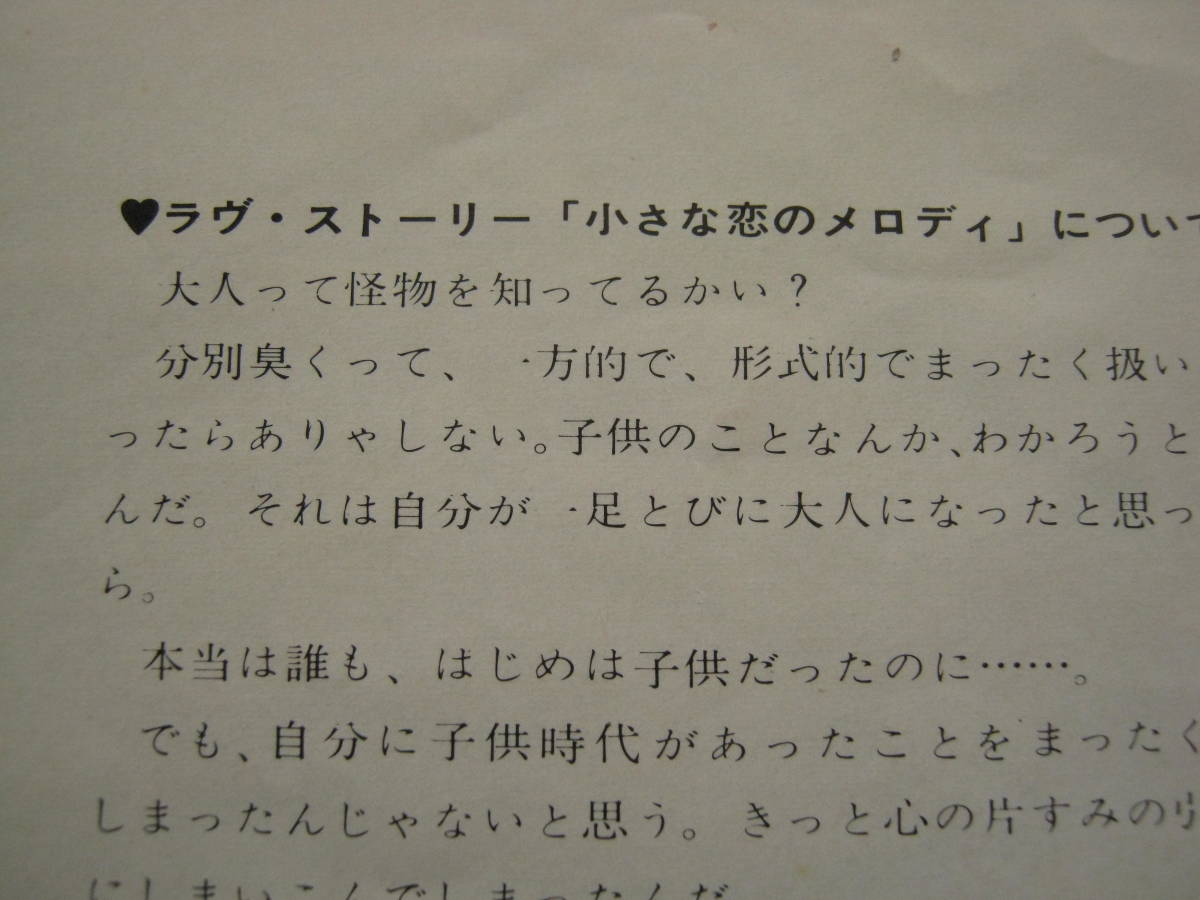 ♥ラヴ・ストーリー「小さな恋のメロディ」につい
大人って怪物を知ってるかい?
分別臭くって、一方的で、形式的でまったく扱い
ったらありゃしない。子供のことなんか、わかろうと
んだ。それは自分が一足とびに大人になったと思っ
ら。
本当は誰も、はじめは子供だったのに……。
でも、自分に子供時代があったことをまったく
しまったんじゃないと思う。きっと心の片すみの
にしまいこんでしまったんだ